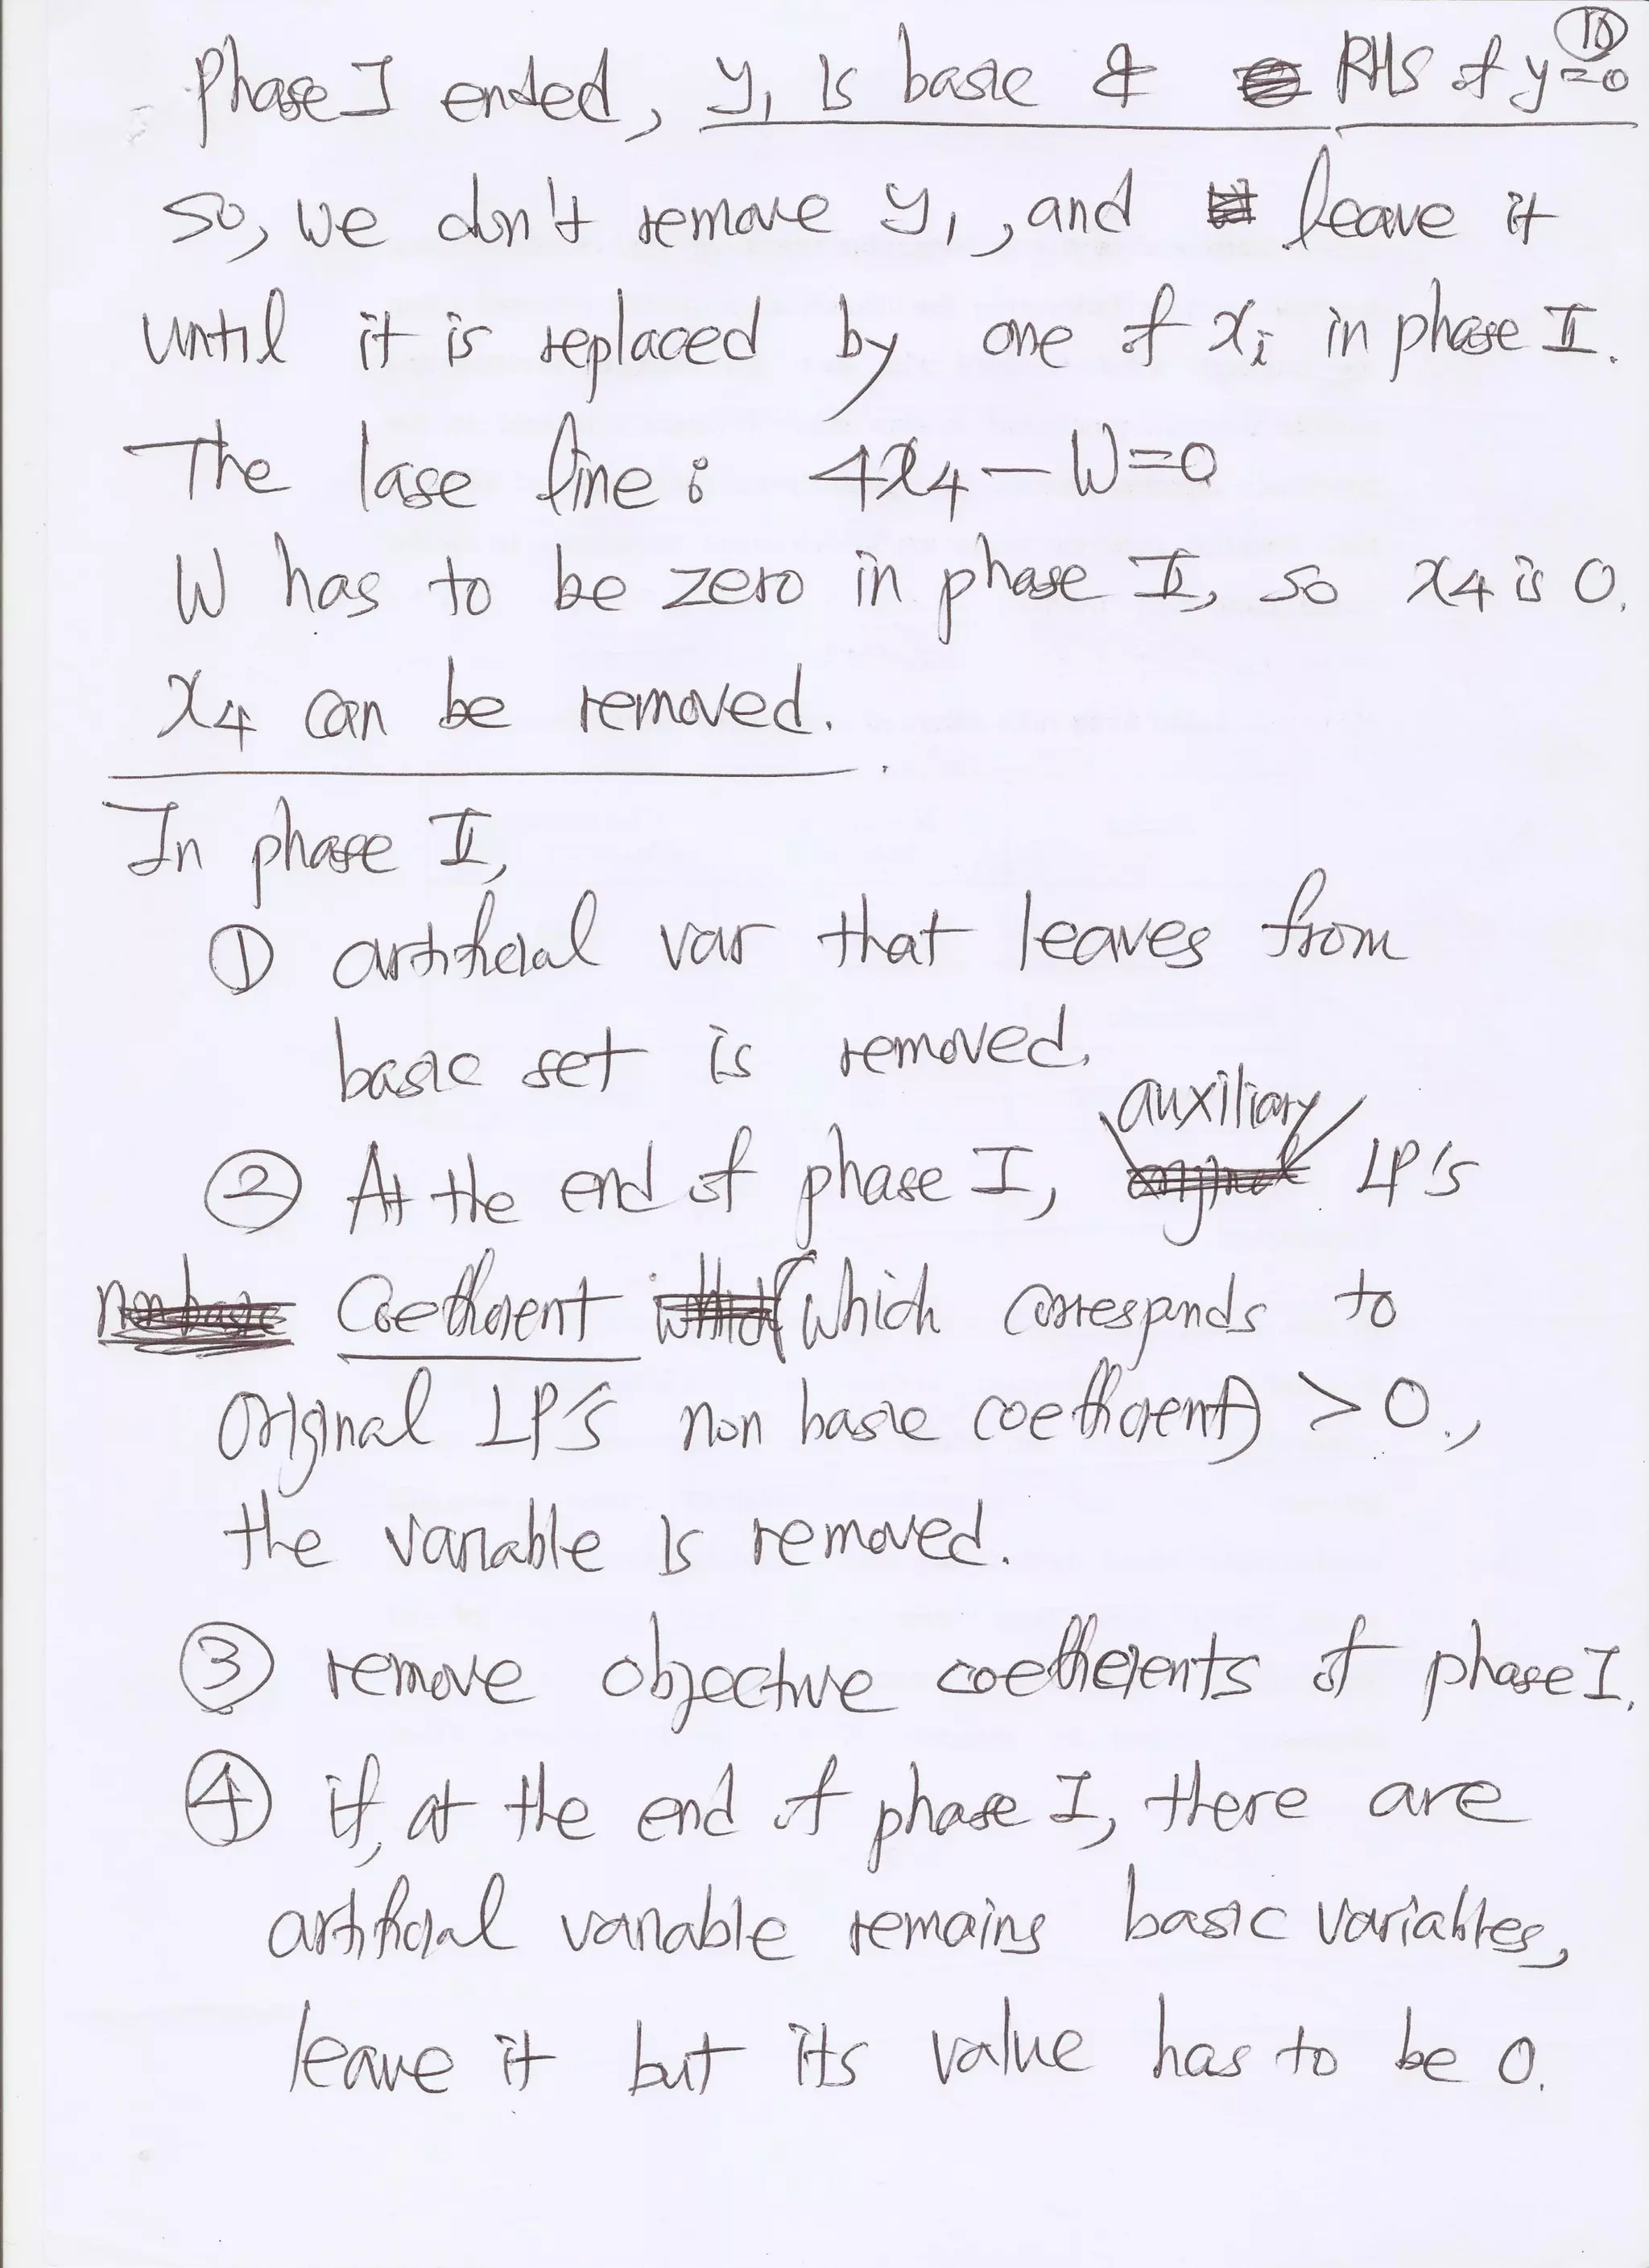 10
Phase I ended, y₁ is basic & RHS of y=0
so, we don't remove y₁, and leave it
until it is replaced by one of xᵢ in phase II.
The lase line: 4x₄-W=0
W has to be zero in phase II, so x₄ is 0.
x₄ can be removed.
In phase II,
① artificial var that leaves from
basic set is removed.
auxiliary
② At the end of phase I, original LP's
non basic Coefficient which (which corresponds to
original LP's non basic coefficient) >0.,
the variable is removed.
③ remove objective coefficients of phase I.
④ if, at the end of phase I, there are
artificial variable remains basic variables,
leave it but its value has to be 0.